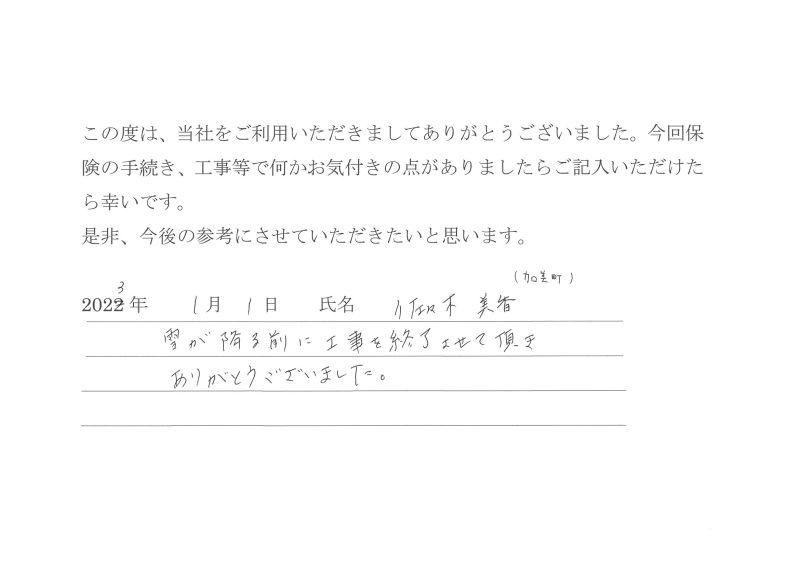 この度は、当社をご利用いただきましてありがとうございました。今回保
険の手続き、工事等で何かお気付きの点がありましたらご記入いただけた
ら幸いです。
是非、今後の参考にさせていただきたいと思います。
(加美町)
3
2022年 1月 1日 氏名 美香
雪が降る前に工事を終了させて頂き
ありがとうございました。